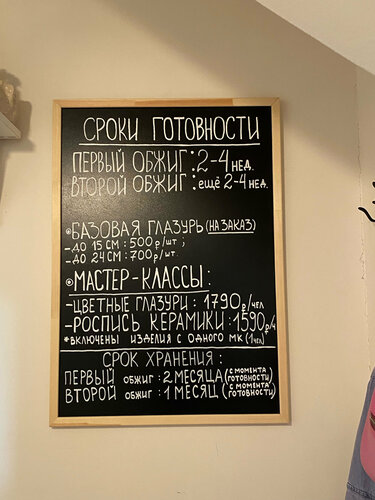 СРОКИ ГОТОВНОСТИ
ПЕРВЫЙ ОБЖИГ: 2-4 НЕД.
ВТОРОЙ ОБЖИГ: ЕЩЁ 2-4 НЕД.
*БАЗОВАЯ ГЛАЗУРЬ (НА ЗАКАЗ)
-ДО 15 СМ: 500 Р/ШТ;
-ДО 24 СМ: 700 Р/ШТ.
*МАСТЕР-КЛАССЫ:
-ЦВЕТНЫЕ ГЛАЗУРИ: 1790 Р/ЧЕЛ
-РОСПИСЬ КЕРАМИКИ: 1590 Р/Ч
*ВКЛЮЧЕНЫ ИЗДЕЛИЯ С ОДНОГО МК (1 ЧЕЛ)
СРОК ХРАНЕНИЯ:
ПЕРВЫЙ ОБЖИГ: 2 МЕСЯЦА (С МОМЕНТА ГОТОВНОСТИ)
ВТОРОЙ ОБЖИГ: 1 МЕСЯЦ (С МОМЕНТА ГОТОВНОСТИ)